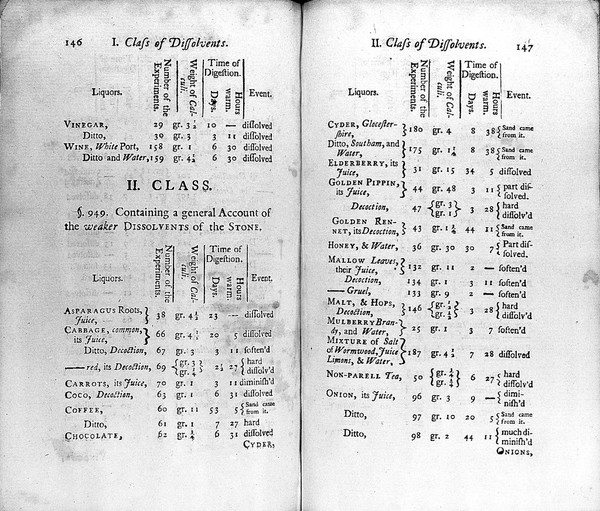 146 I. Claſs of Diſſolvents.
Liquors. Number of the Experiments. Weight of Calculi. Time of Digeſtion. Days. Hours warm. Event.
VINEGAR, 29 gr. 3 ½ 10 — diſſolved
Ditto, 30 gr. 3 3 11 diſſolved
WINE, White Port, 158 gr. 1 6 30 diſſolved
Ditto and Water, 159 gr. 4½ 6 30 diſſolved
II. CLASS.
§. 949. Containing a general Account of
the weaker DISSOLVENTS of the STONE.
Liquors. Number of the Experiments. Weight of Calculi. Time of Digeſtion. Days. Hours warm. Event.
ASPARAGUS Roots,
Juice, 38 gr. 4½ 23 — diſſolved
CABBAGE, common,
its Juice, 66 gr. 4 20 5 diſſolved
Ditto, Decoction, 67 gr. 3 3 11 ſoften'd
—— red, its Decoction, 69 gr. 3 gr. 4 3 27 hard diſſolv'd
CARROTS, its Juice, 70 gr. 1 3 11 diminiſh'd
COCO, Decoction, 63 gr. 1 6 31 diſſolved
COFFEE, 60 gr. 11 53 5 Sand came from it.
Ditto, 61 gr. 1 7 27 hard
CHOCOLATE, 62 gr. 6 31 diſſolved
CYDER,
II. Claſs of Diſſolvents. 147
Liquors. Number of the Experiments. Weight of Calculi. Time of Digeſtion. Days. Hours warm. Event.
CYDER, Gloceſter-
ſhire, 180 gr. 4 8 38 Sand came from it.
Ditto, Southam, and
Water, 175 gr. 1¼ 8 38 Sand came from it.
ELDERBERRY, its
Juice, 31 gr. 15 34 5 diſſolved
GOLDEN PIPPIN,
its Juice, 44 gr. 48 3 11 part diſ-ſolved.
Decoction, 47 gr. 3 gr. 1 3 28 hard diſſolv'd
GOLDEN REN-
NET, its Decoction, 43 gr. 1¼ 44 11 Sand came from it.
HONEY, & Water, 36 gr. 30 30 7 Part diſ-ſolved.
MALLOW Leaves,
their Juice, 132 gr. 11 2 — ſoften'd
Decoction, 134 gr. 1 3 11 ſoften'd
— Gruel, 133 gr. 9 2 — ſoften'd
MALT, & HOPS,
Decoction, 146 gr. gr. 3 28 hard diſſolv'd
MULBERRY Bran-
dy, and Water, 25 gr. 1 3 7 ſoften'd
MIXTURE of Salt
of Wormwood, Juice
Limons, & Water, 187 gr. 4½ 7 28 diſſolved
NON-PARELL Tea, 50 gr. gr. 6 27 hard diſſolv'd
ONION, its Juice, 96 gr. 3 9 — dimi-niſh'd
Ditto, 97 gr. 10 20 5 Sand came from it.
Ditto, 98 gr. 2 44 11 much di-miniſh'd
ONIONS,